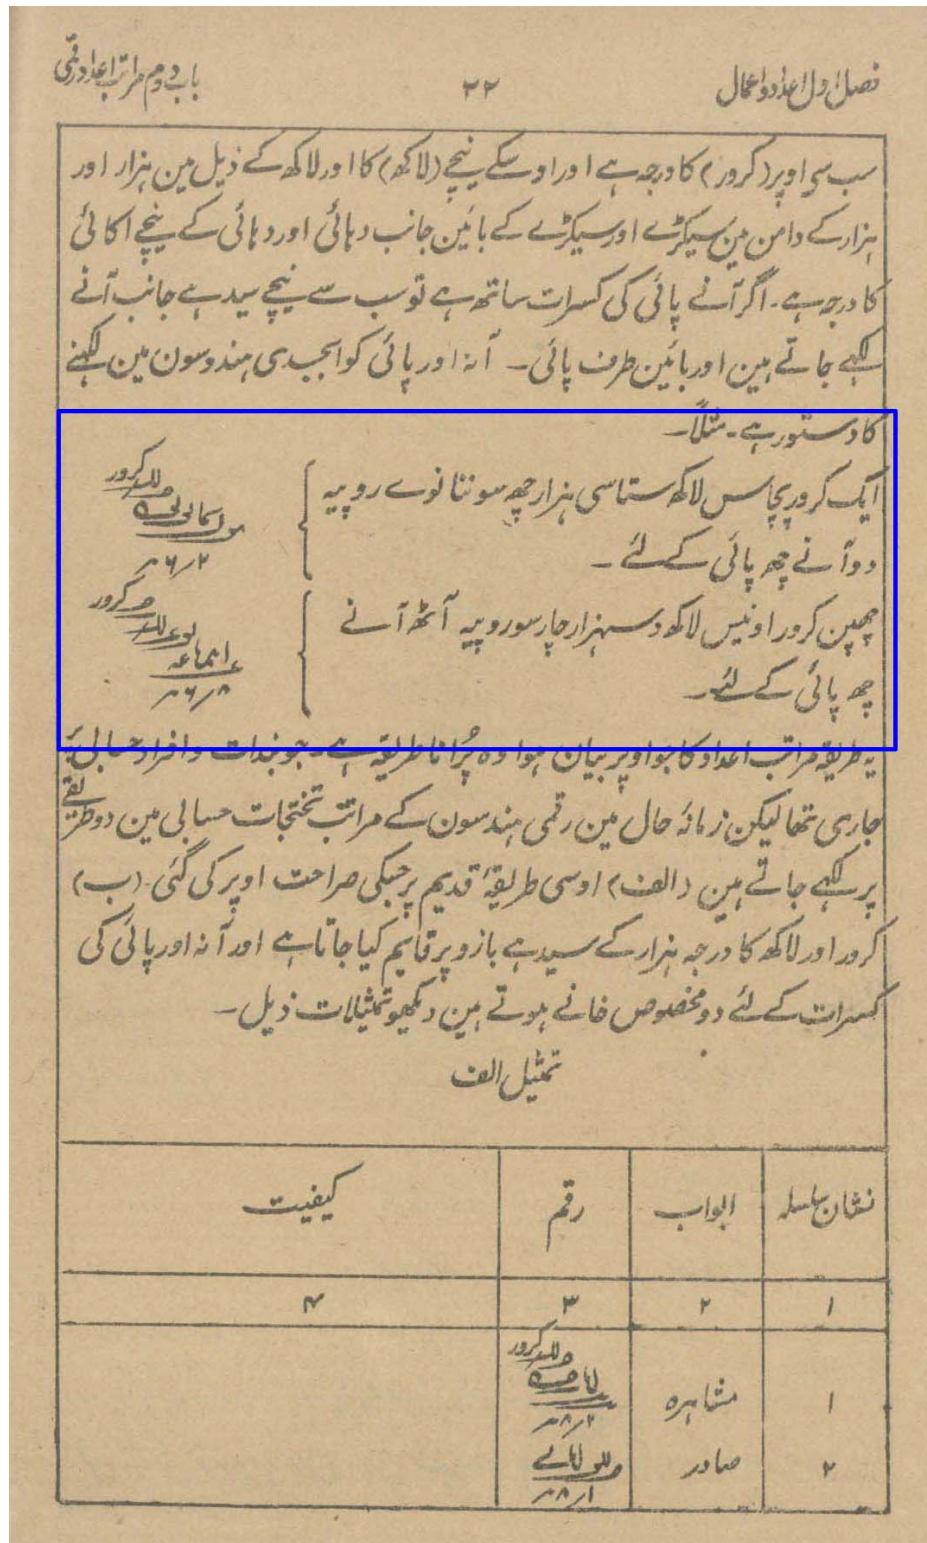 فصل اول اعداد و اعمال
۲۲
باب دوم مراتب اعداد رقمی
سب سی اوپر (کرور) کا درجہ ہے اور اوسکے نیچے (لاکھ) کا اور لاکھ کے ذیل مین ہزار اور
ہزار کے دامن مین سیکڑے اور سیکڑے کے بائین جانب دہائی اور دہائی کے نیچے اکائی
کا درجہ ہے۔ اگر آنے پائی کی کسرات ساتھ ہے تو سب سے نیچے سیدہے جانب آنے
لکہے جاتے ہین اور بائین طرف پائی۔ آنہ اور پائی کو ابجدی ہندوسون مین لکہنے
کا دستور ہے۔ مثلاً۔
ایک کرور پچاس لاکھ ستاسی ہزار چھ سو ننانوے روپیہ
دو آنے چھ پائی کے لئے۔
کرور
۲ر۶
چھپن کرور اونیس لاکھ دسہزار چار سو روپیہ آٹھ آنے
چھ پائی کے لئے۔
کرور
۸ر۶
یہ طریقہ مراتب اعداد کا جو اوپر بیان ہوا وہ پُرانا طریقہ ہے۔ جو بندات و افراد حسابی پر
جاری تھا لیکن زمانہ حال مین رقمی ہندسون کے مراتب تختجات حسابی مین دو طریقے
پر لکہے جاتے ہین (الف) اوسی طریقۂ قدیم پر جسکی صراحت اوپر کی گئی۔ (ب)
کرور اور لاکھ کا درجہ ہزار کے سیدہے بازو پر قایم کیا جاتا ہے اور آنہ اور پائی کی
کسرات کے لئے دو مخصوص خانے ہوتے ہین دیکھو تمثیلات ذیل۔
تمثیل الف
نشان سلسلہ
ابواب
رقم
کیفیت
۱
۲
۳
۴
۱
مشاہرہ
کرور
۲
صادر